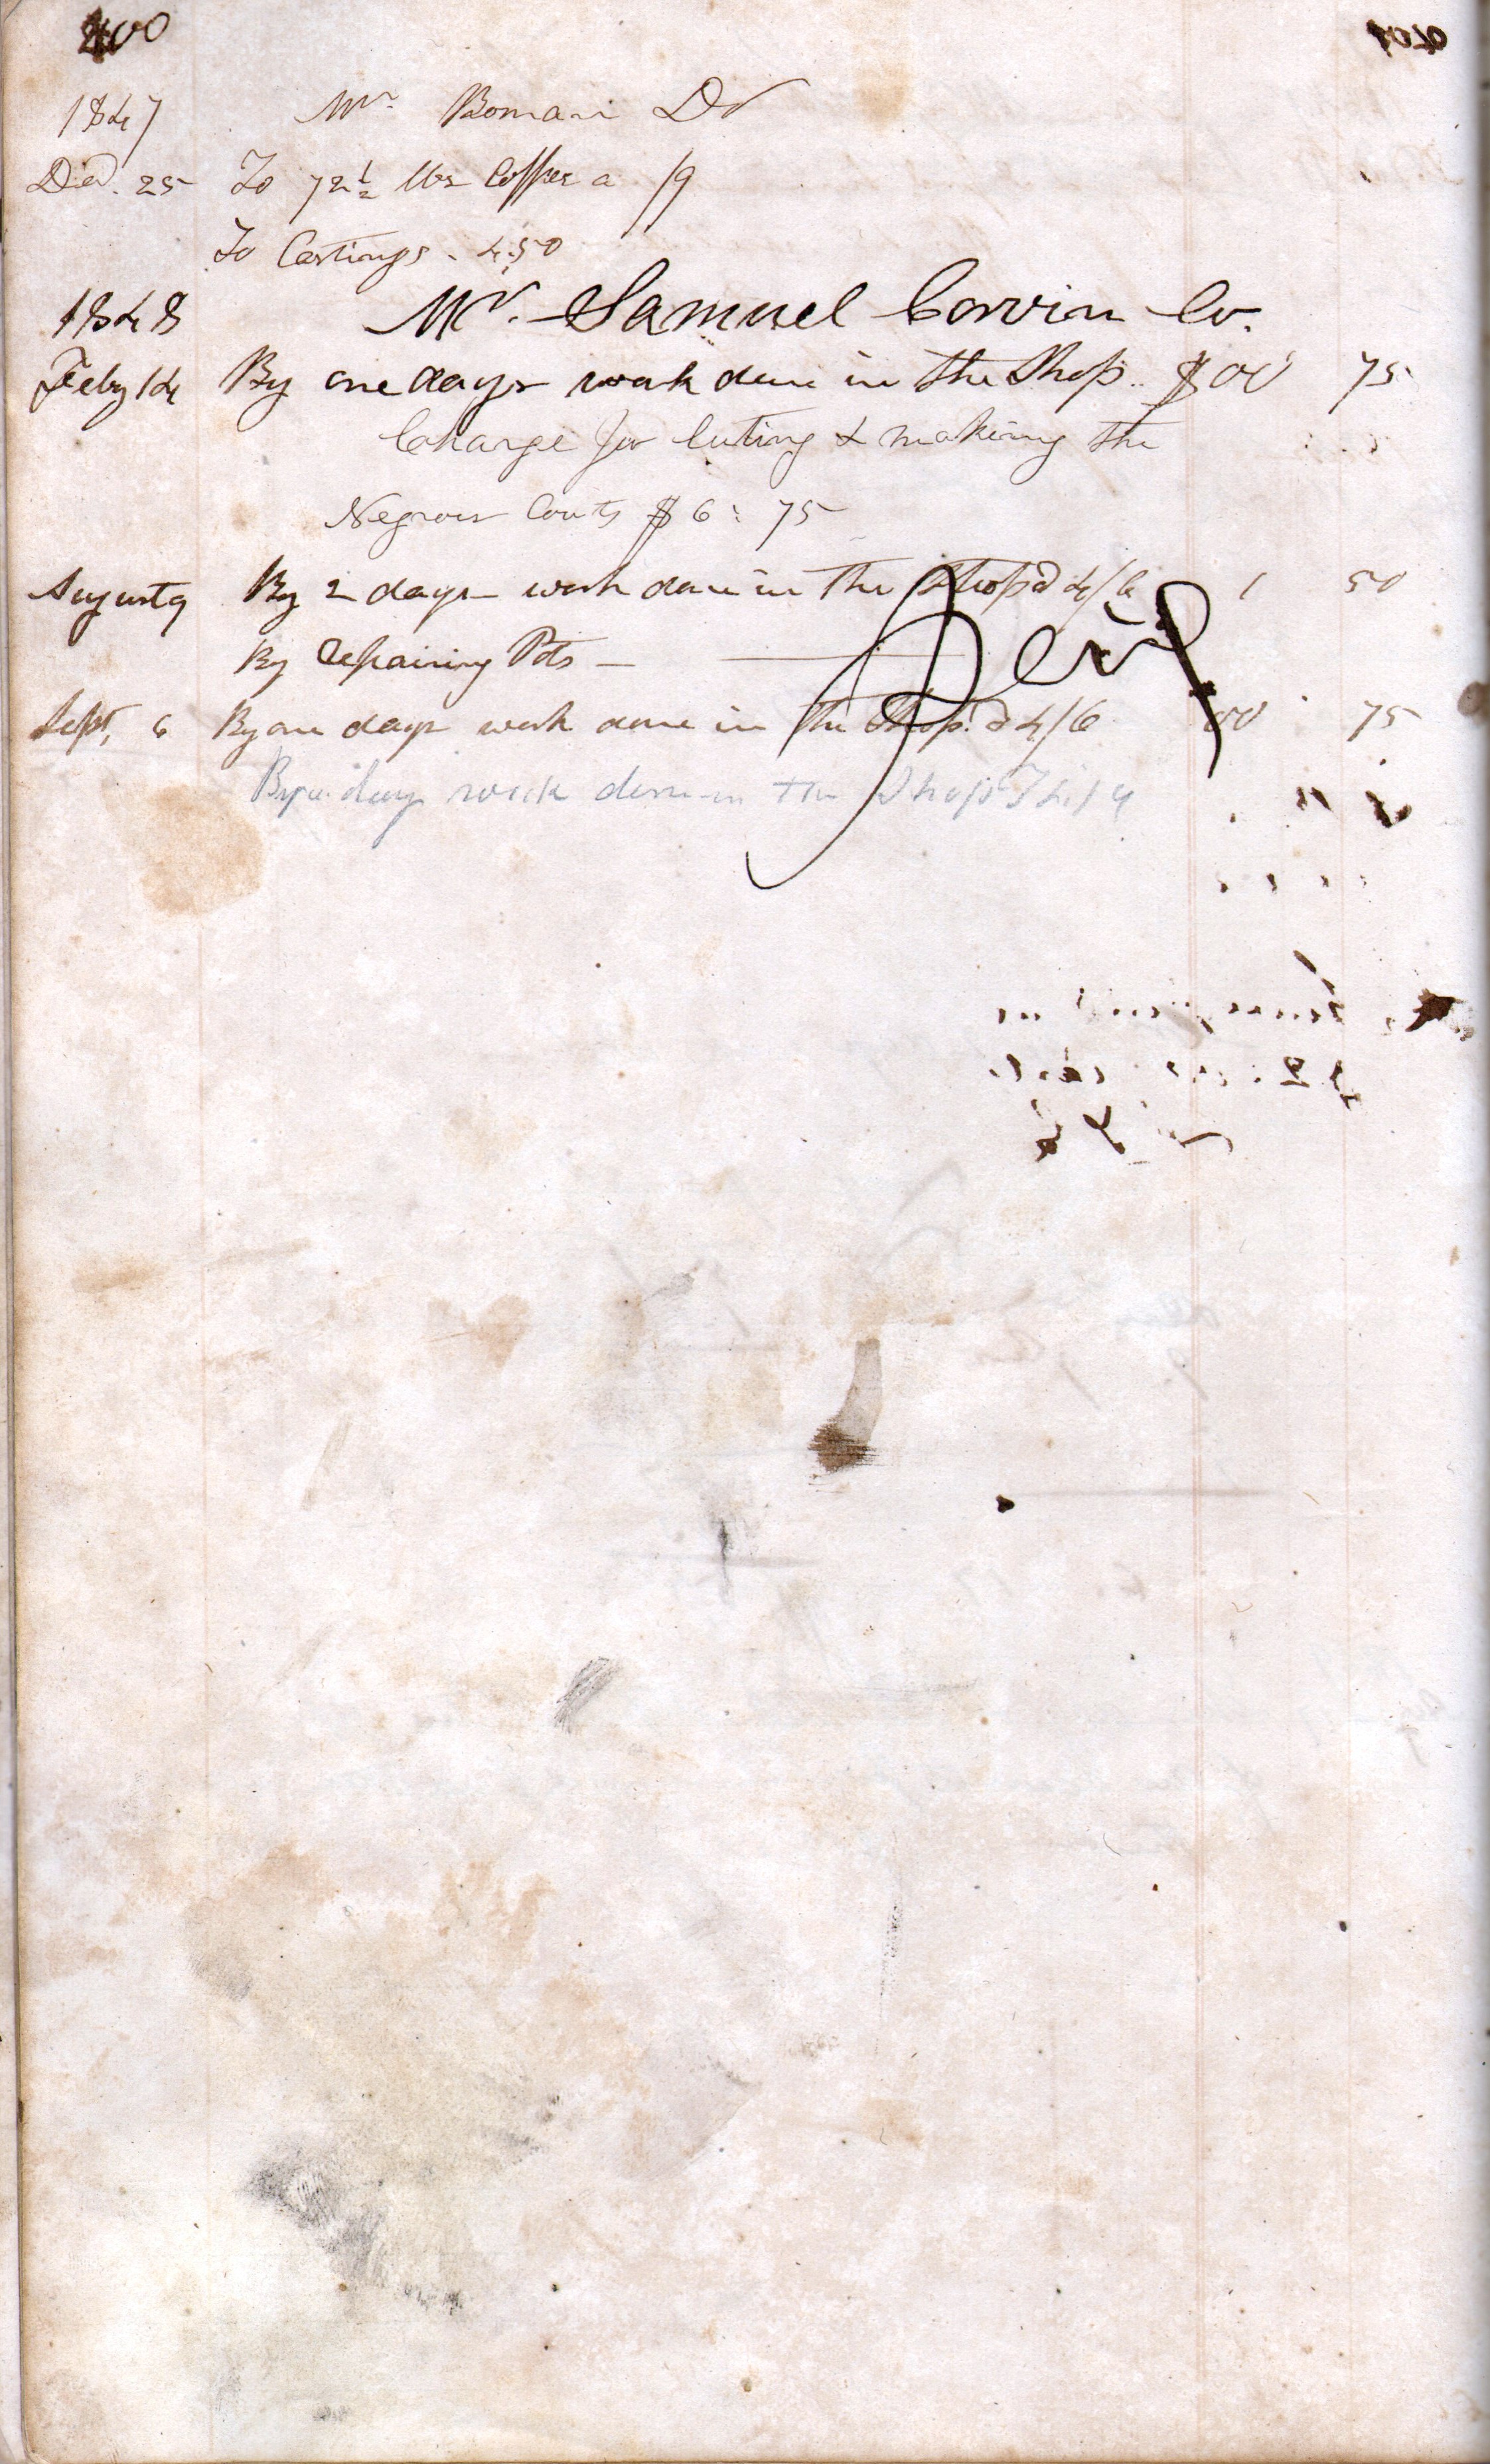 400
1847 Mr. Boman Dr
Dec. 25 To 72½ lbs Coffee a /9
To Castings. 4.50
1848 Mr. Samuel Corvin Cr.
Feby 14 By one days work done in the Shop.. $ 00 75
Charge for Cuting & making the
Negroes Coats $ 6: 75
August 9 By 2 days work done in the Shop @ 4/6 1 50
By repairing Pots —
Sept, 6 By one days work done in the Shop. @ 4/6 00 75
day work done in the Shop